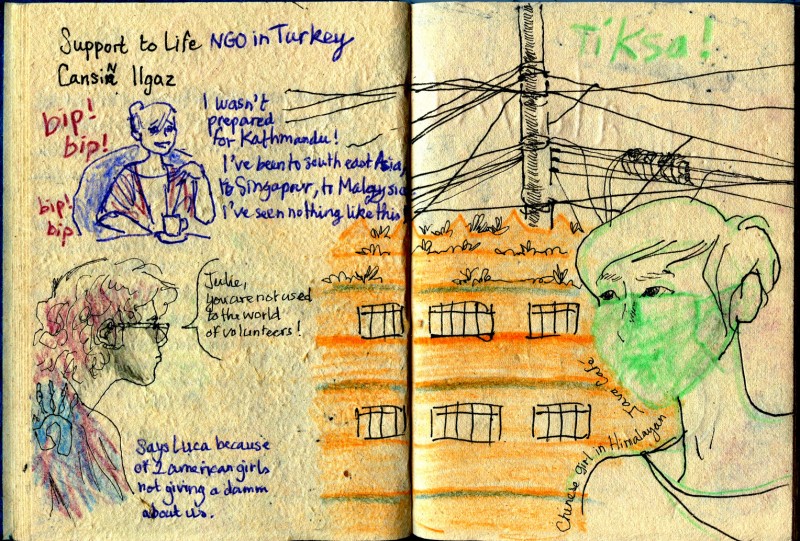 Support to Life NGO in Turkey
Cansiñ Ilgaz
bip!
bip!
bip!
bip
I wasn't
prepared
for Kathmandu!
I've been to south east Asia,
to Singapour, to Malaysia
I've seen nothing like this
Julie,
you are not used
to the world
of volunteers!
Says Luca because
of 2 american girls
not giving a damm
about us.
Tiksa!
Chinese girl in Himalayan
Java Café